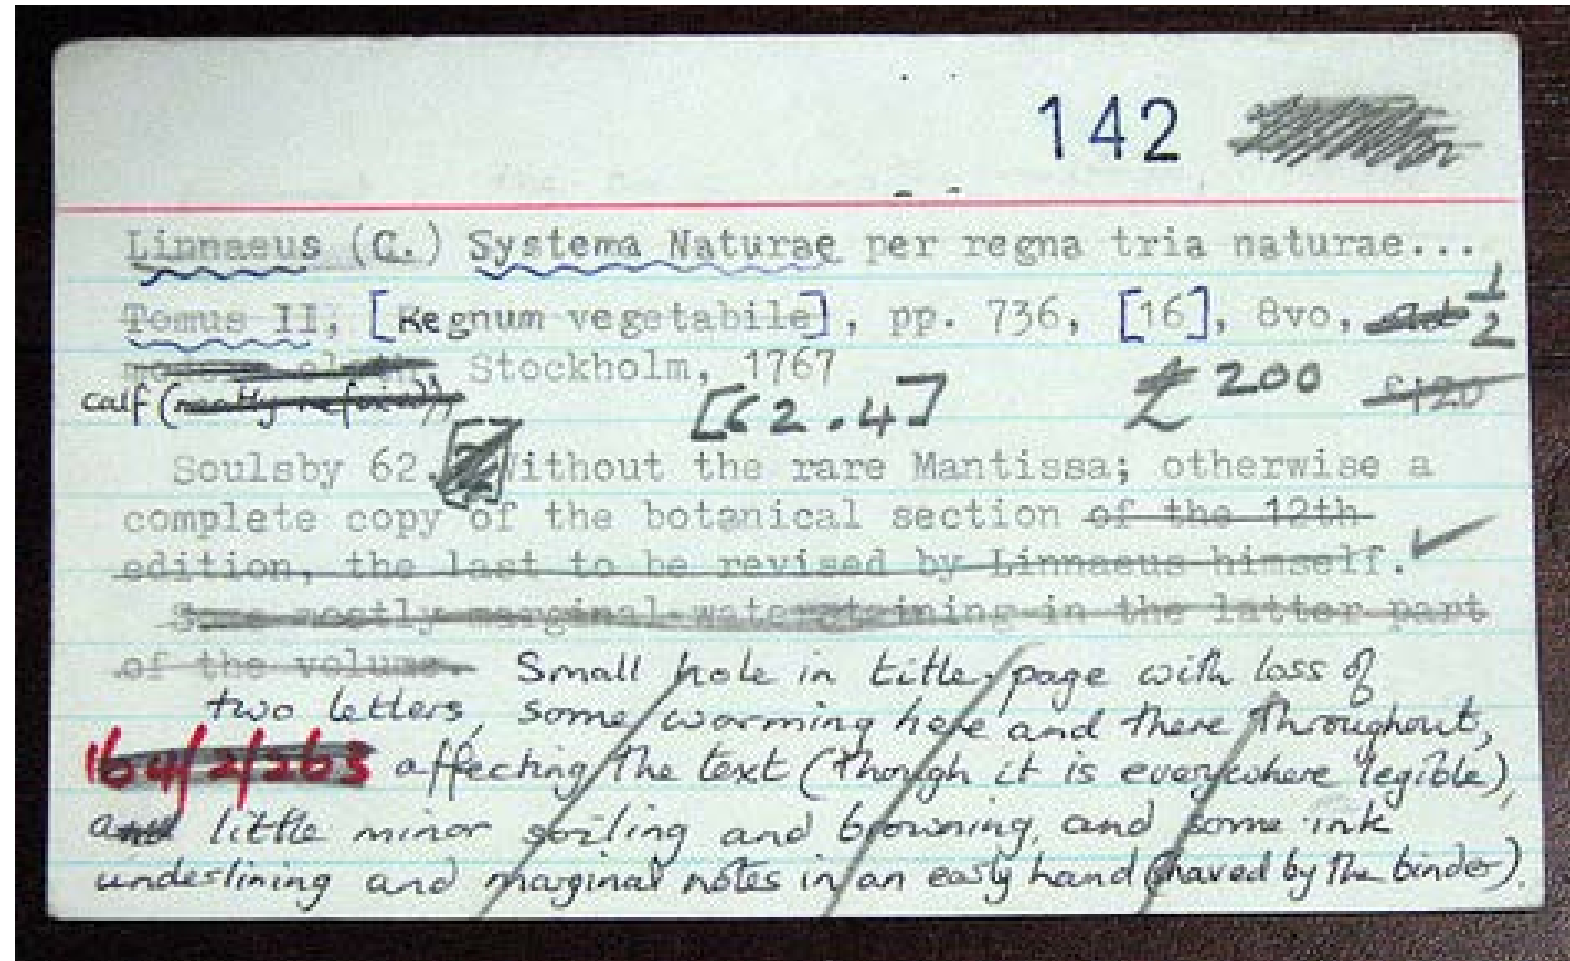 142
Linnaeus (C.) Systema Naturae per regna tria naturae...
Tomus II, [Regnum vegetabile], pp. 736, [16], 8vo, 1/2
modern cloth, Stockholm, 1767
calf (neatly refixed), [62.4] £200 £120
Soulsby 62. Without the rare Mantissa; otherwise a
complete copy of the botanical section of the 12th
edition, the last to be revised by Linnaeus himself. ✓
Some mostly marginal waterstaining in the latter part
of the volume. Small hole in title-page with loss of
two letters, some worming here and there throughout,
164/2/263 affecting the text (though it is everywhere legible),
a little minor soiling and browning, and some ink
underlining and marginal notes in an early hand (shaved by the binder).